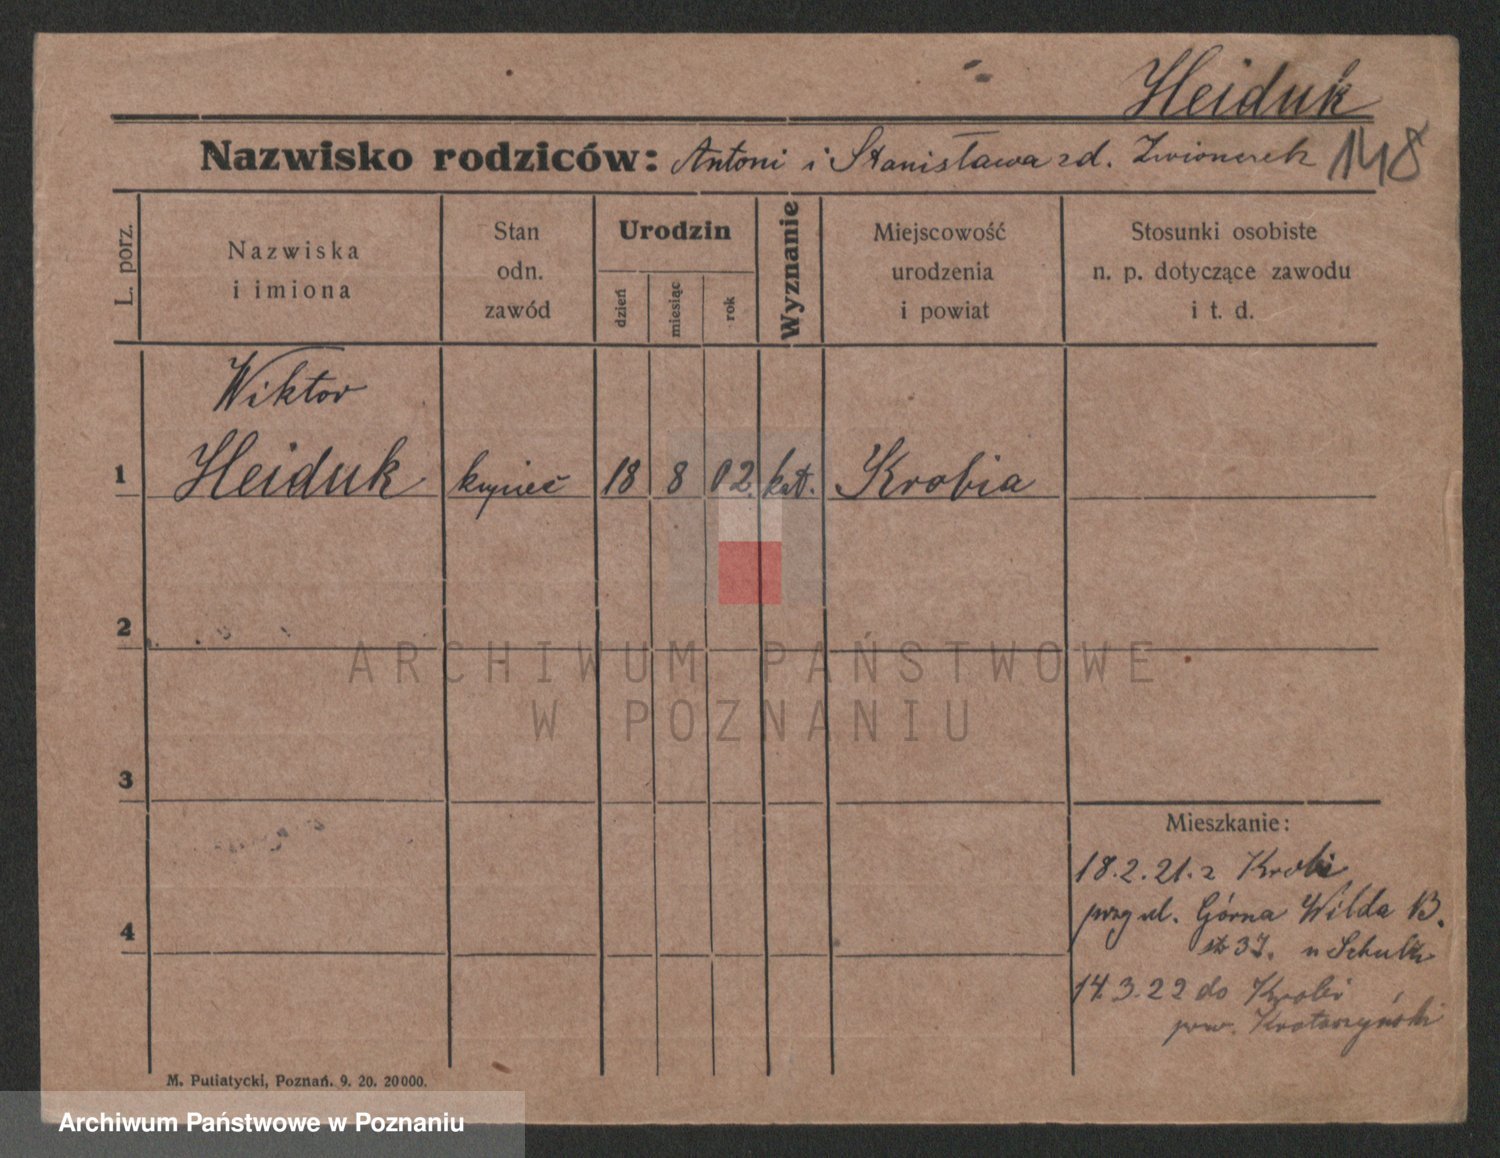 Heiduk
Nazwisko rodziców: Antoni i Stanisława zd. 148
L. porz.
Nazwiska
i imiona
Stan
odn.
zawód
Urodzin
dzień
miesiąc
rok
Wyznanie
Miejscowość
urodzenia
i powiat
Stosunki osobiste
n. p. dotyczące zawodu
i t. d.
Wiktor
1 Heiduk kupiec 18 8 02 kat. Krobia
2
ARCHIWUM PAŃSTWOWE
W POZNANIU
3
Mieszkanie:
18.2.21. z Krobi
przy ul. Górna Wilda 13.
37. u Schulz
4
14.3.22 do Krobi
pow.
M. Putiatycki, Poznań. 9. 20. 20000.
Archiwum Państwowe w Poznaniu